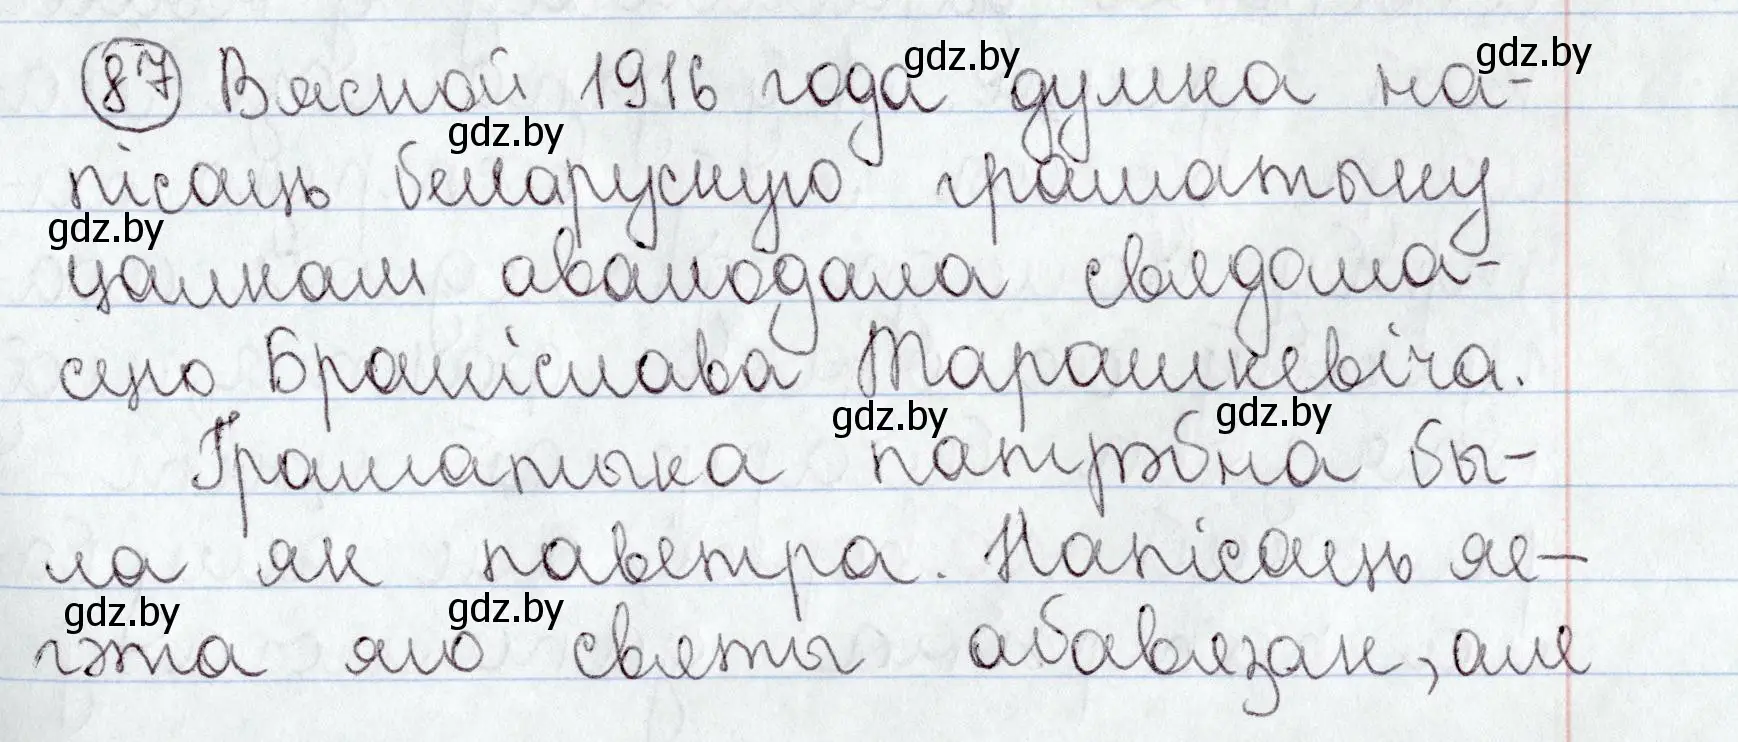 87 Вясной 1916 года думка на-
пісаць беларускую граматыку
цалкам авалодала свядома-
сцю Браніслава Тарашкевіча.
Граматыка патрэбна бы-
ла як паветра. Напісаць яе —
гэта яго святы абавязак, але
gdz.by
gdz.by
gdz.by
gdz.by
gdz.by
gdz.by
gdz.by
gdz.by